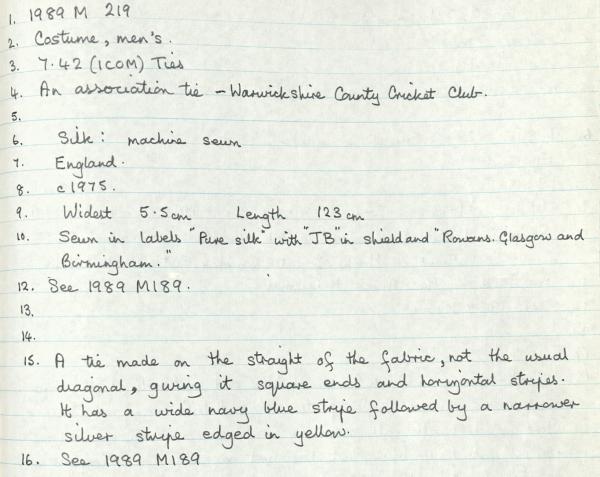 1. 1989 M 219
2. Costume, men's.
3. 7.42 (ICOM) Ties
4. An association tie – Warwickshire County Cricket Club.
5.
6. Silk: machine sewn
7. England.
8. c1975.
9. Widest 5.5cm Length 123cm
10. Sewn in labels "Pure silk" with "JB" in shield and "Rowans. Glasgow and
Birmingham."
12. See 1989 M189.
13.
14.
15. A tie made on the straight of the fabric, not the usual
diagonal, giving it square ends and horizontal stripes.
It has a wide navy blue stripe followed by a narrower
silver stripe edged in yellow.
16. See 1989 M189